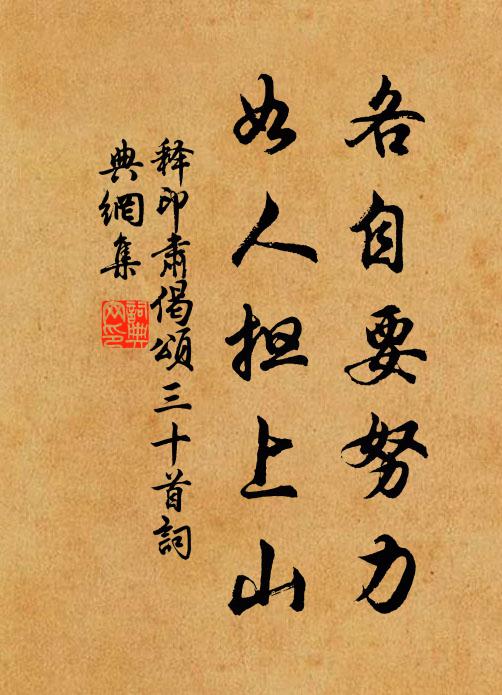 各自要努力
如人担上山
释印肃偈颂三十首詞
典網集
詞典
网印